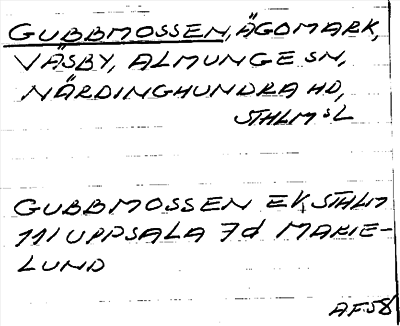 GUBBMOSSEN, ÄGOMARK,
VÄSBY, ALMUNGE SN,
NÄRDINGHUNDRA HD,
STHLMSL
GUBBMOSSEN EK STHLM
111 UPPSALA 7d MARIE-
LUND
AF58